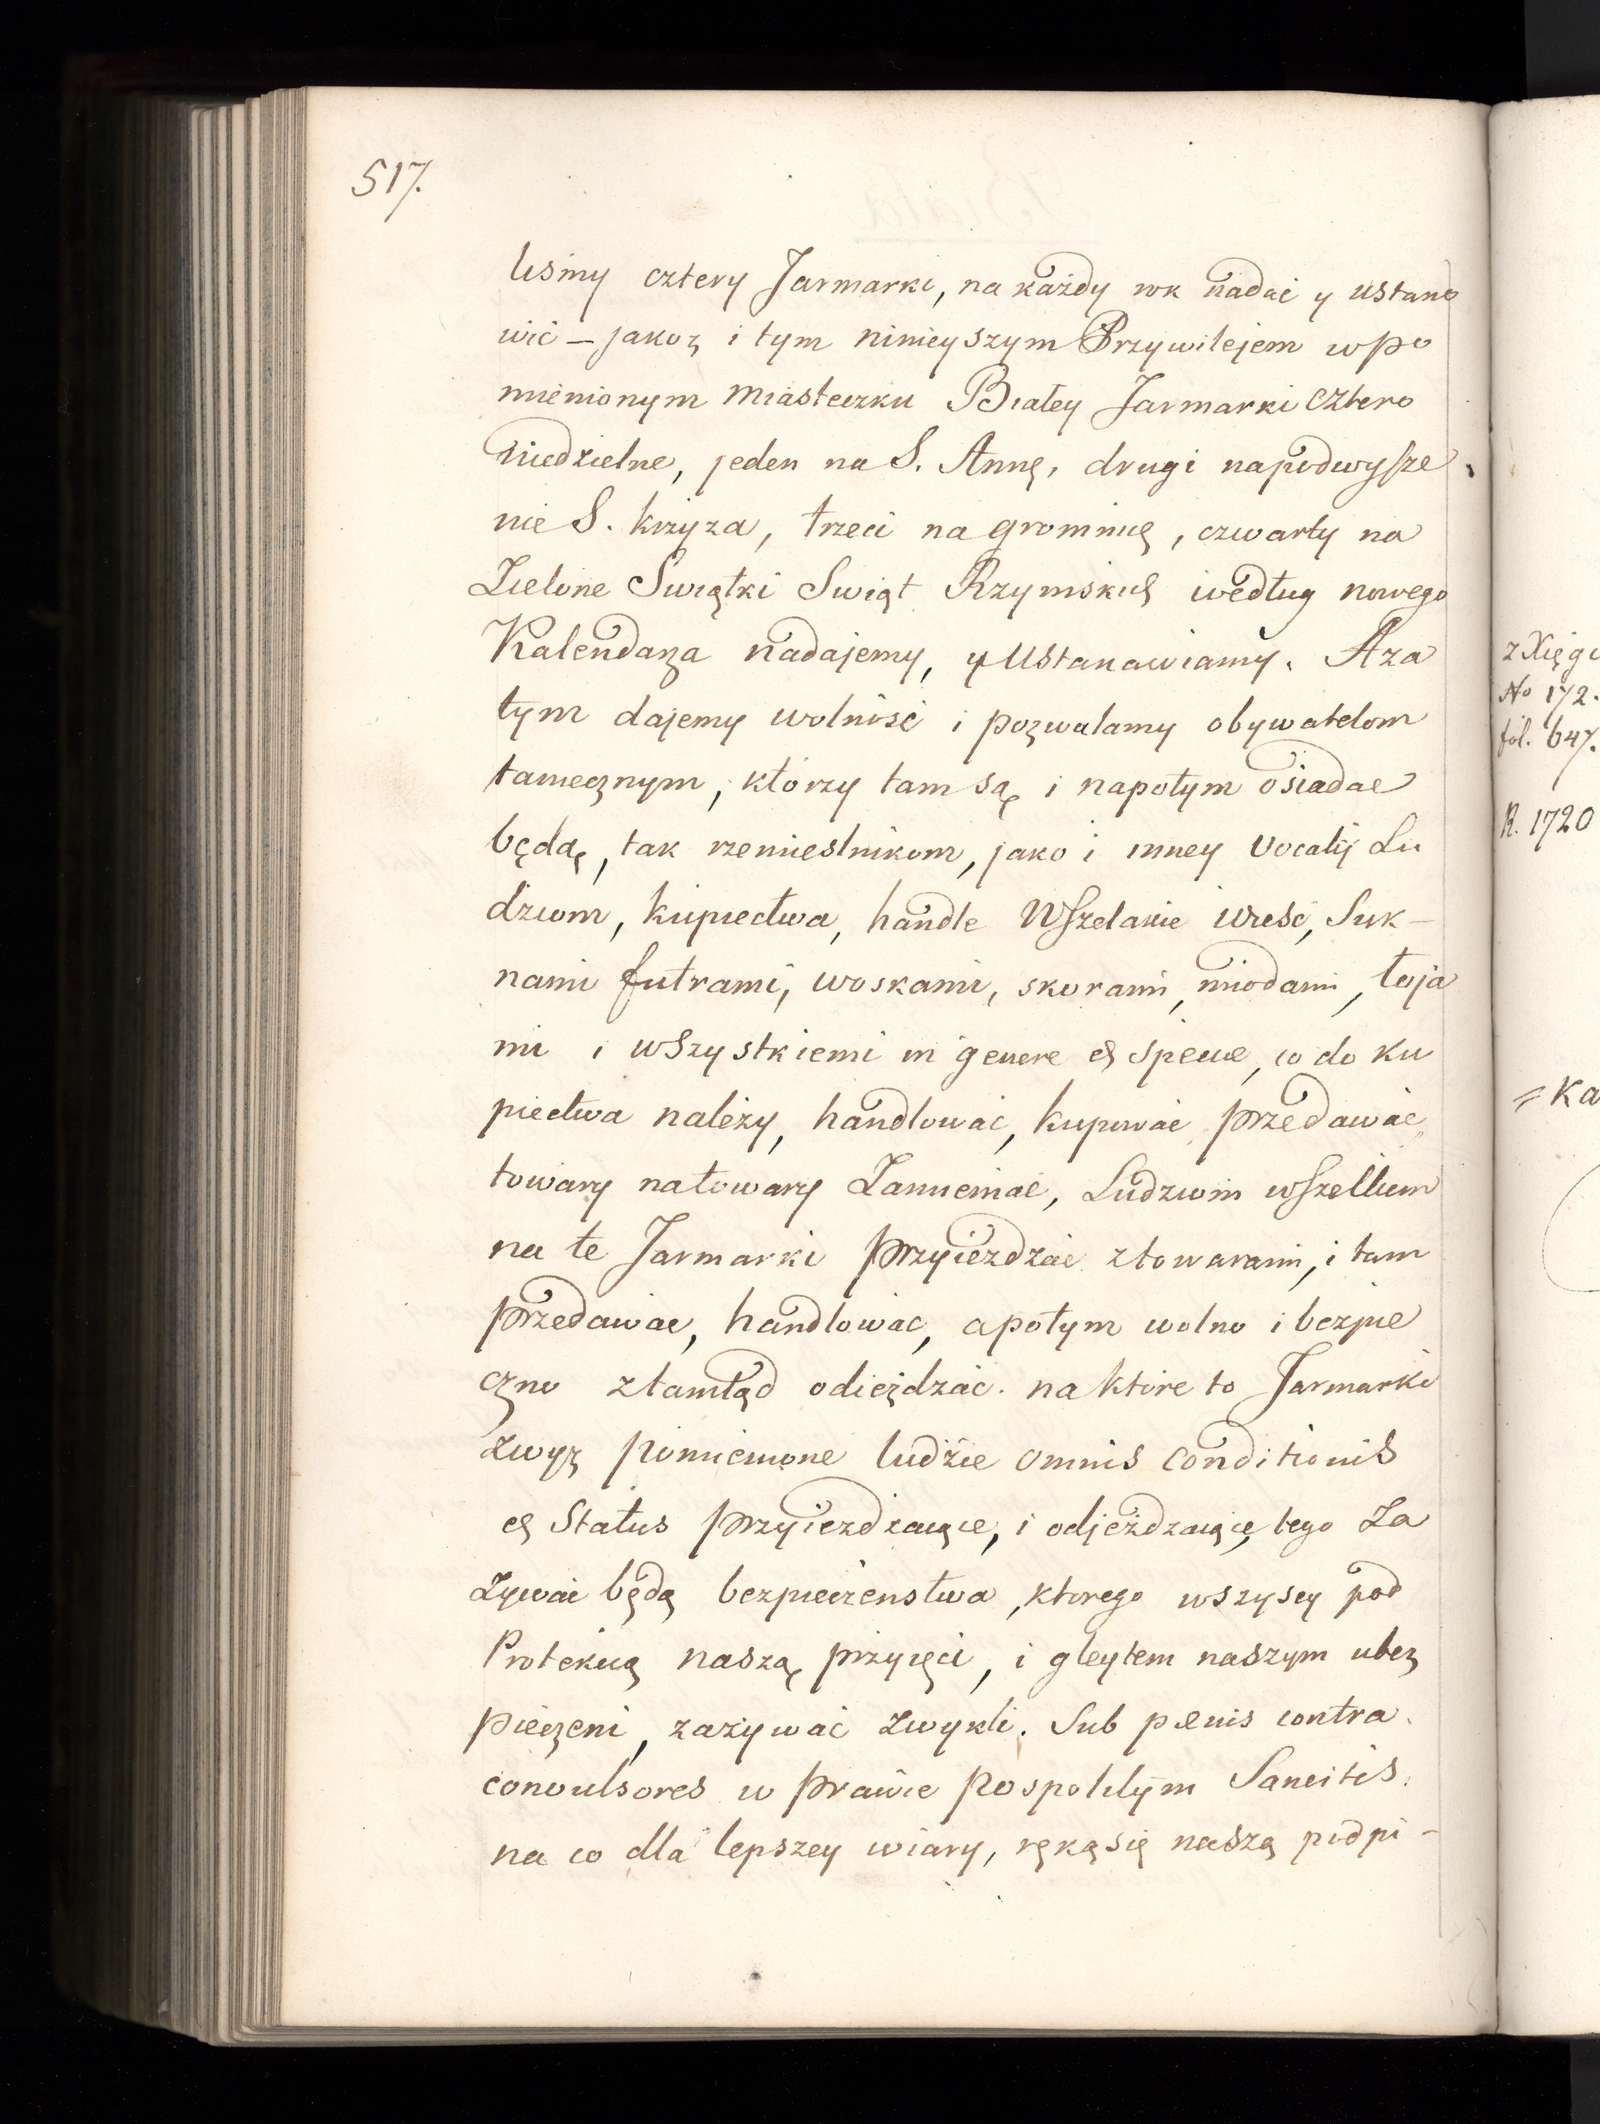 517.
liśmy cztery Jarmarki, na każdy rok nadać y ustano
wić – jakoz i tym ninieyszym Przywilejem wpo
mienionym miasteczku Białey Jarmarki cztero
niedzielne, jeden na S. Annę, drugi napodwysze
nie S. krzyza, trzeci na gromnicę, czwarty na
Zielone Swiątki Swiąt Rzymskich według nowego
Kalendarza nadajemy, y ustanawiamy. Aza
tym dajemy wolność i pozwalamy obywatelom
tamecznym, którzy tam są i napotym osiadać
będą, tak rzemieslnikom, jako i inney vocatij Lu
dziom, kupiectwa, handle Wszelakie wieść, Suk-
nami futrami, woskami, skorami, miodami, łoja
mi i wszystkiemi in genere et specie, co do ku
piectwa należy, handlować, kupować przedawać
towary natowary Zamieniać, Ludziom wszelkiem
na te Jarmarki przyiezdzać ztowarami, i tam
przedawac, handlowac, apotym wolno i bezpie
czno ztamtąd odieżdzać. na które to Jarmarki
Zwyz pomienione ludzie omnis conditionis
et Status przyiezdzaiące, i odjeżdzaiące, tego Za
Zywać będą bezpieczenstwa, ktorego wszyscy pod
Protekcią naszą przyięci, i gleytem naszym ubez
pieczeni, zażywać Zwykli. Sub pœnis contra
convulsores w prawie pospolitym Sancitis.
na co dla lepszey wiary, ręką się naszą podpi-
z Xięgi
No 172.
fol. 647.
R. 1720
= Ka